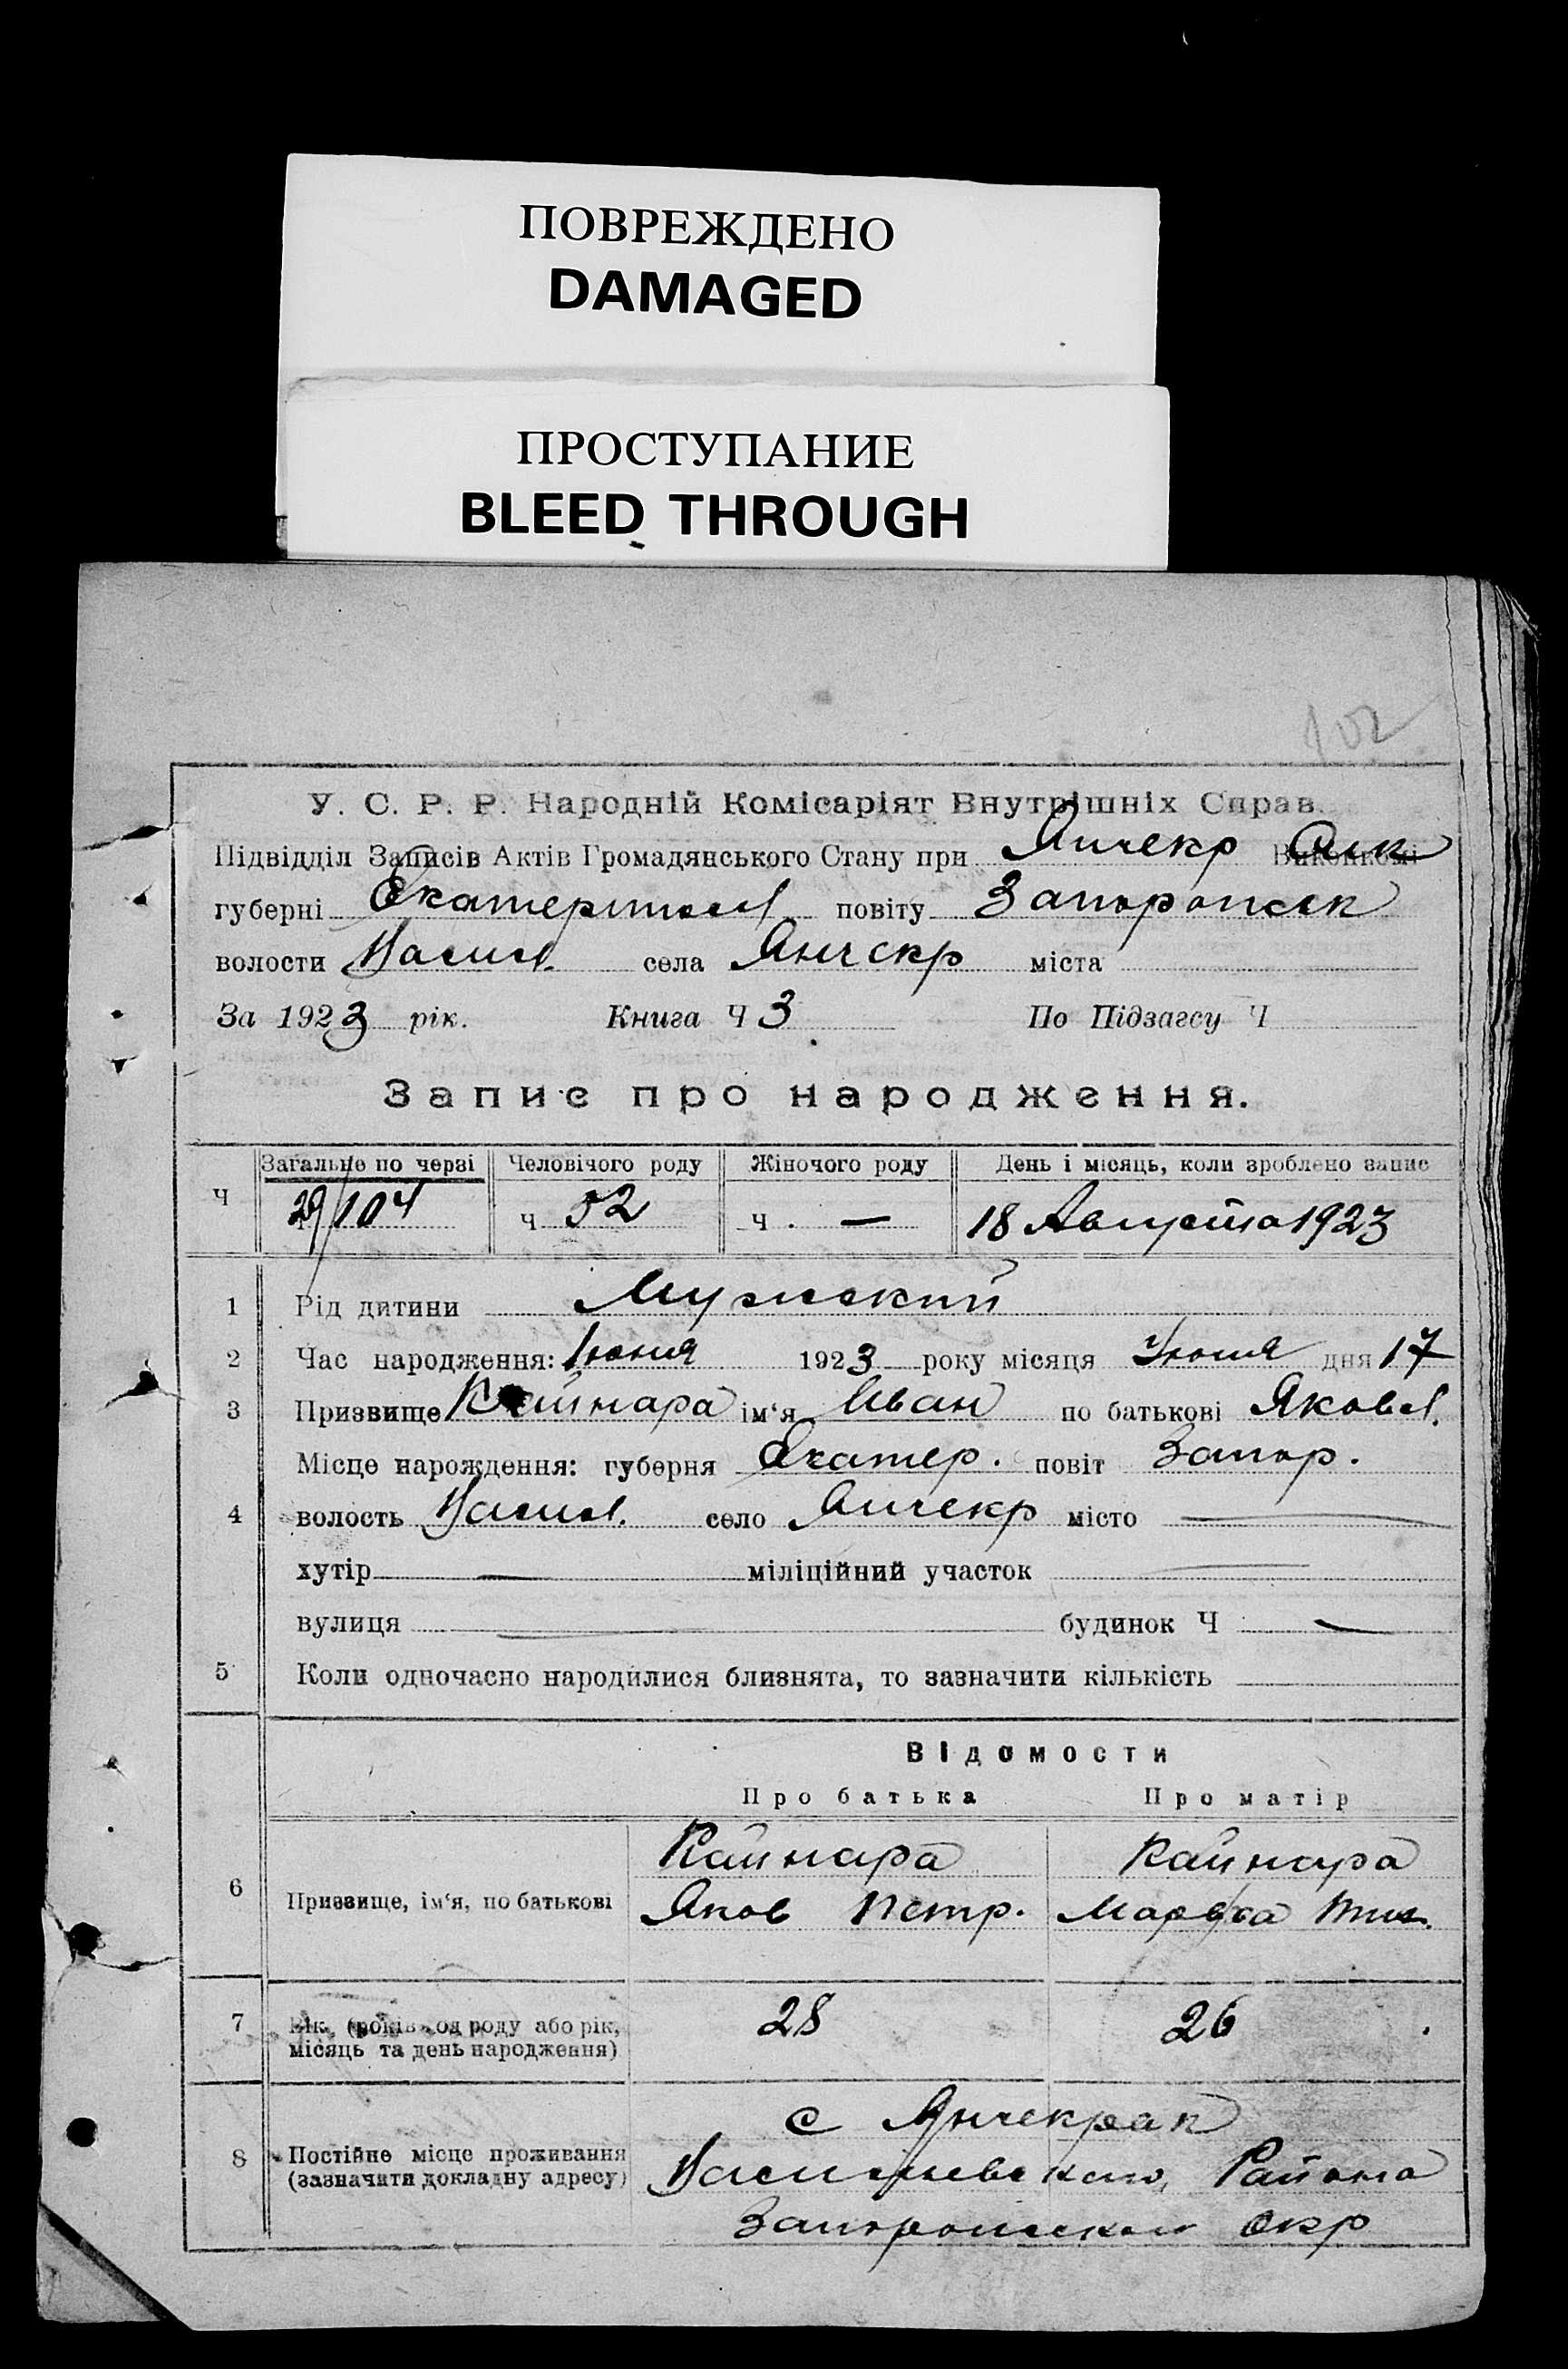 ПОВРЕЖДЕНО
DAMAGED
ПРОСТУПАНИЕ
BLEED THROUGH
102
У. С. Р. Р. Народній Комісаріят Внутрішніх Справ.
Підвідділ Записів Актів Громадянського Стану при Янчекр Виконкомі
губерні повіту Запорожск
волости Васил. села Янчекр міста
За 1923 рік. Книга Ч 3 По Підзагсу Ч
Запис про народження.
Загальне по черзі Человічого роду Жіночого роду День і місяць, коли зроблено запис
Ч 29/104 ч 52 ч . — 18 Августа 1923
1 Рід дитини Мужский
2 Час народження: Июня 1923 року місяця Июня дня 17
3 Призвище Кайнара ім‘я Иван по батькові Яковл.
Місце нарождення: губерня Екатер. повіт Запор.
4 волость Васил. село Янчекр місто —
хутір — міліційний участок —
вулиця — будинок Ч —
5 Коли одночасно народилися близнята, то зазначити кількість
Відомости
Про батька Про матір
Кайнара Кайнара
6 Призвище, ім‘я, по батькові Яков Петр. Марфа Тим.
7 Вік, (років од роду або рік, 28 26
місяць та день народження)
с Янчекрак
8 Постійне місце проживання
(зазначити докладну адресу) Васильевского Района
Запорожской Окр